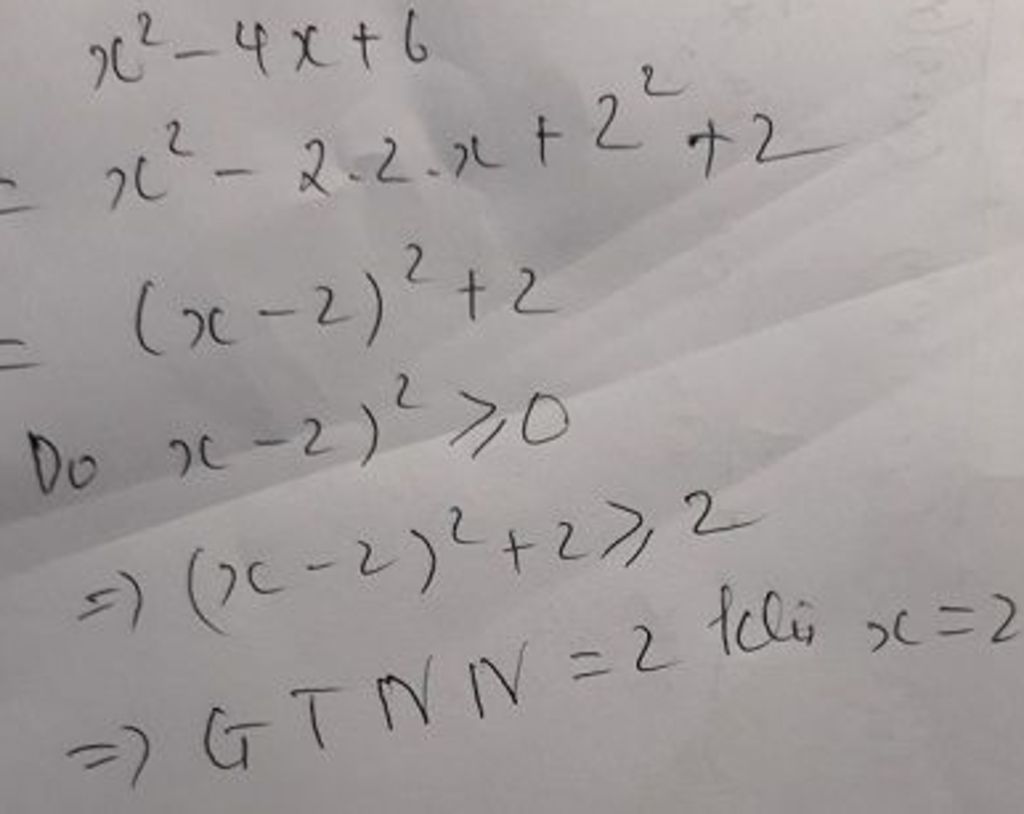 x² - 4x + 6
= x² - 2.2.x + 2² + 2
= (x - 2)² + 2
Do x - 2)² ≥ 0
=> (x - 2)² + 2 ≥ 2
=> GTNN = 2 khi x = 2